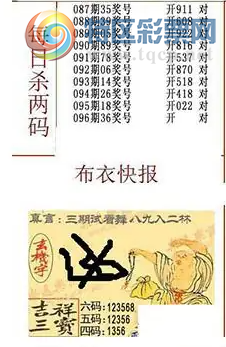 每日杀两码
087期35奖号 开911 对
088期39奖号 开608 对
089期05奖号 开922 对
090期89奖号 开816 对
091期78奖号 开537 对
092期06奖号 开870 对
093期14奖号 开518 对
094期26奖号 开418 对
095期18奖号 开022 对
096期36奖号 开 对
布衣快报
真言：三期试看舞八九入二杯
玄機字
吉祥
三寶
六码：123568
五码：12356
四码：1356